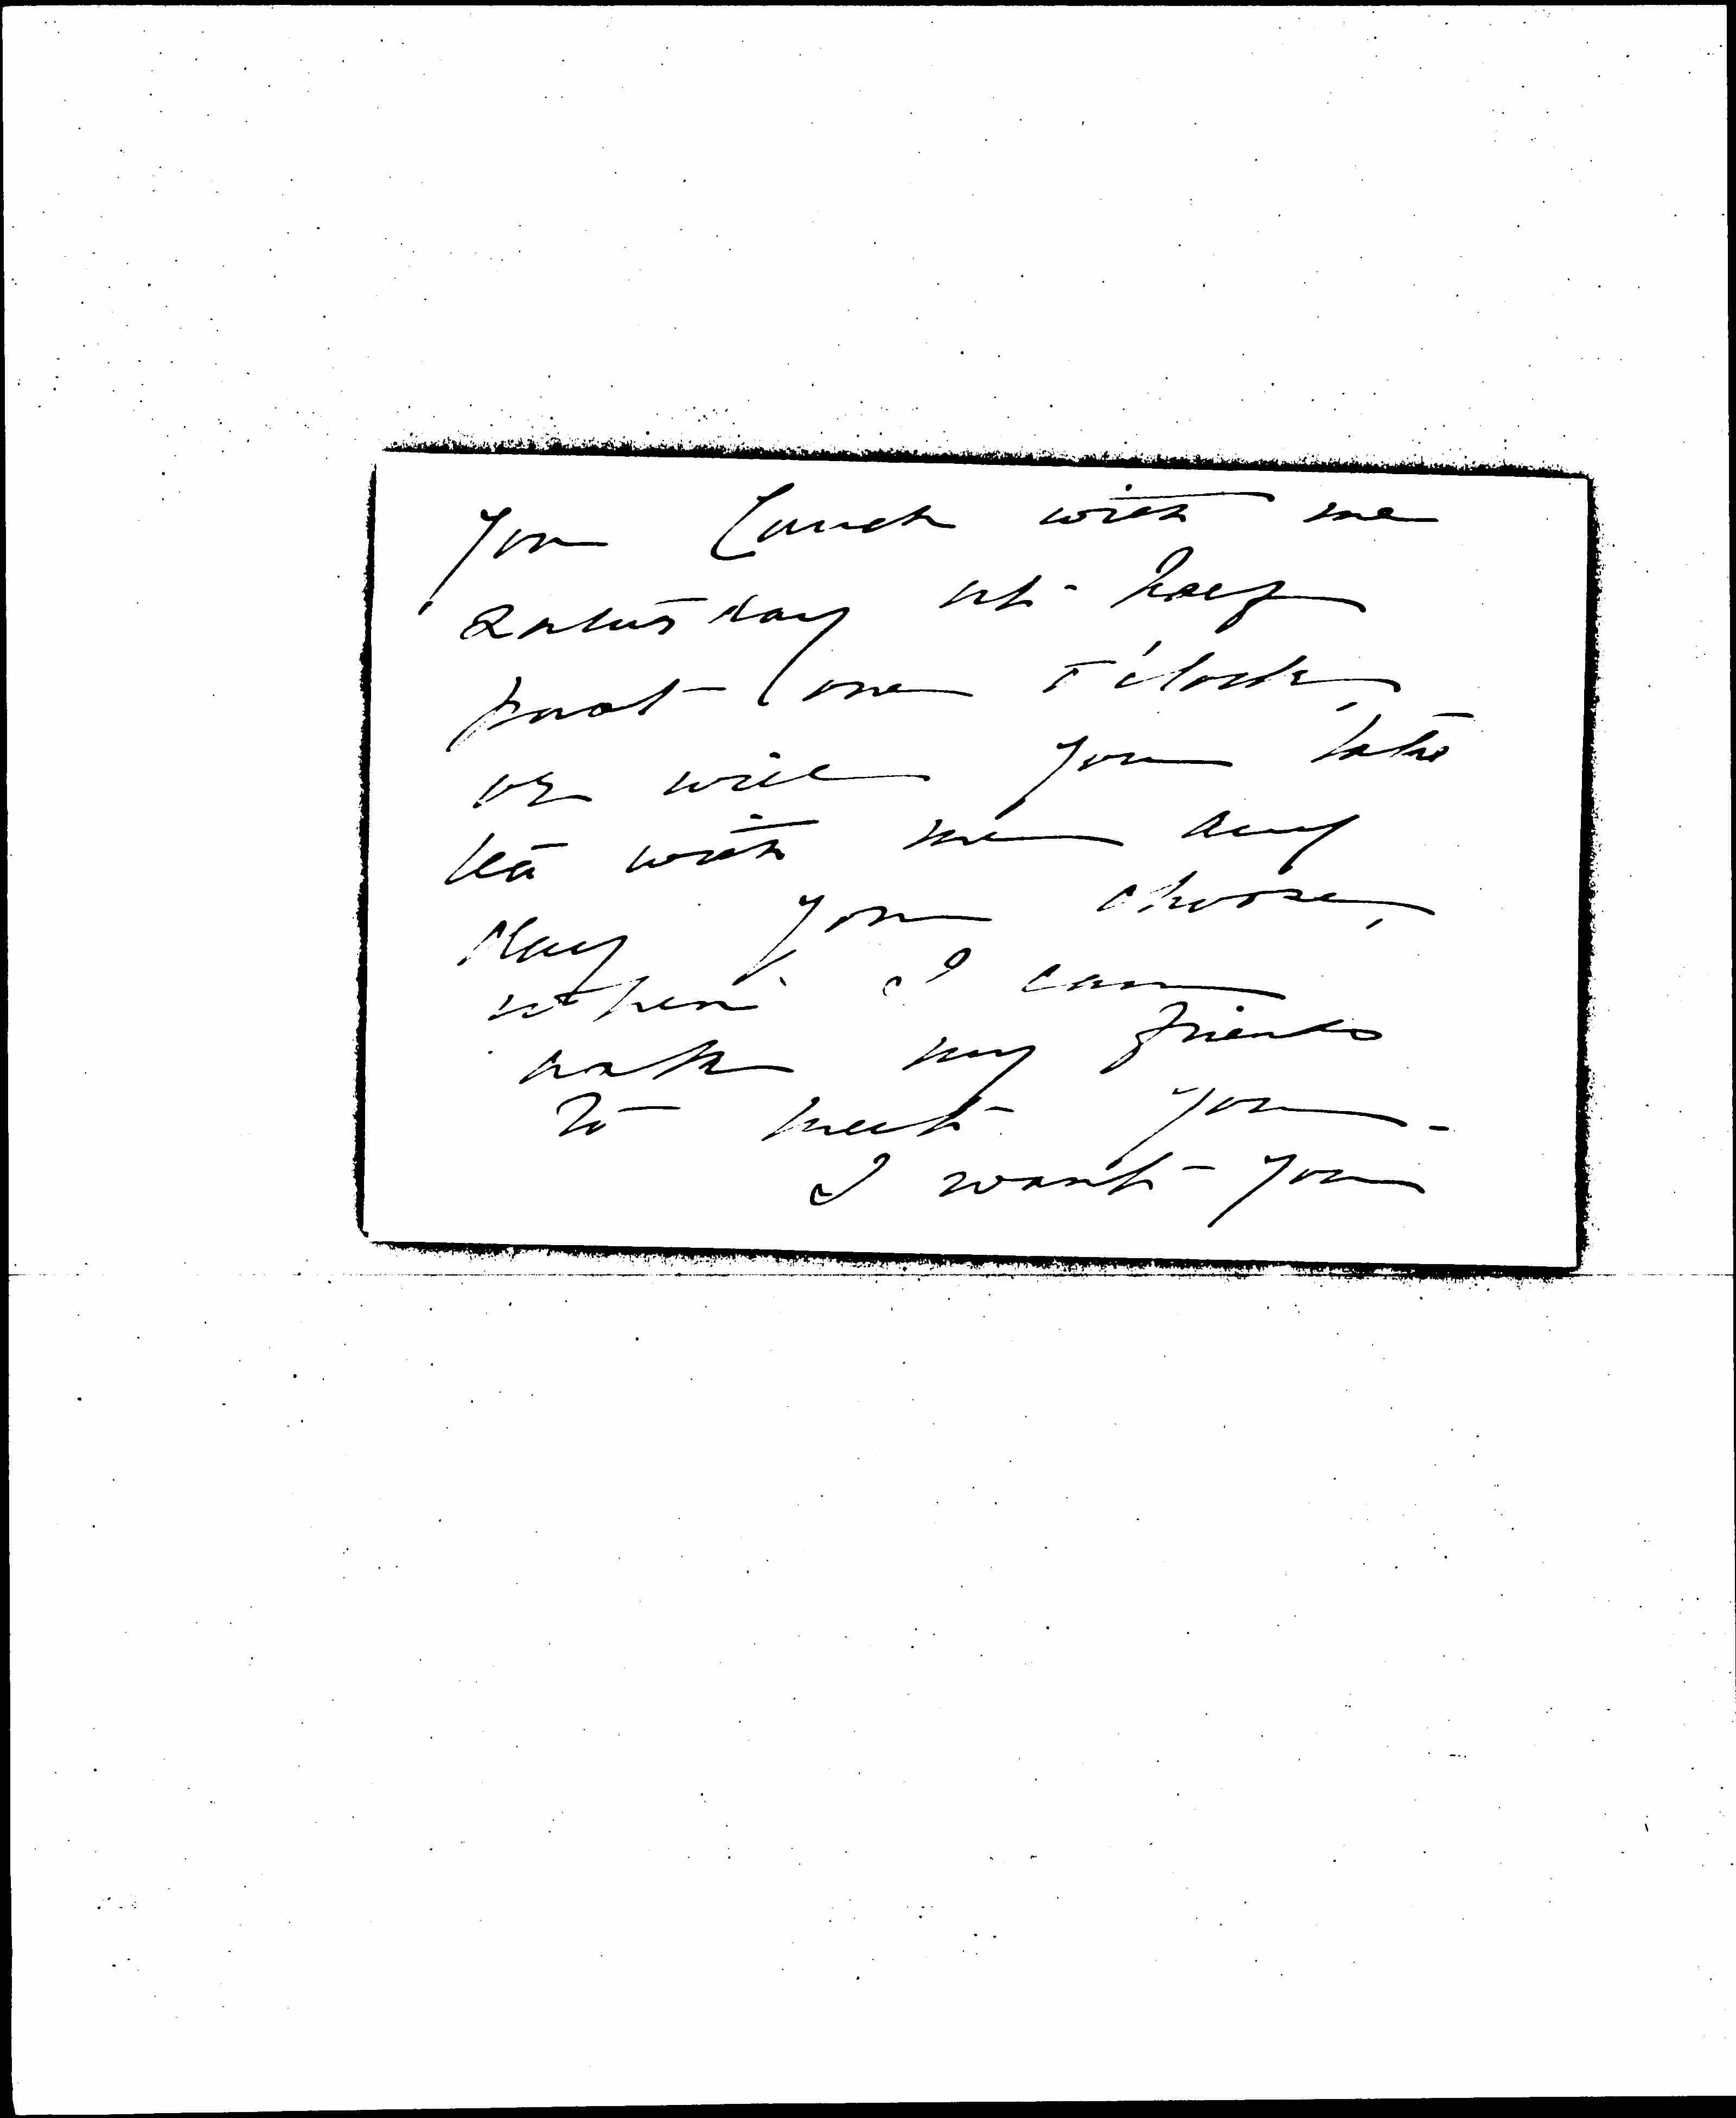 you lunch with me
Saturday at half
past one o'clock,
or will you take
tea with me any
day you choose,
when I can
ask my friends
to meet you -
I want you